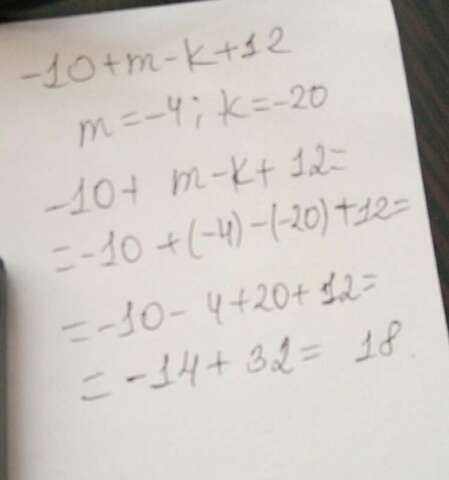 -10+m-k+12
m=-4; k=-20
-10+ m-k+ 12=
=-10 +(-4)-(-20)+12=
=-10- 4+20+12=
=-14+ 32= 18.